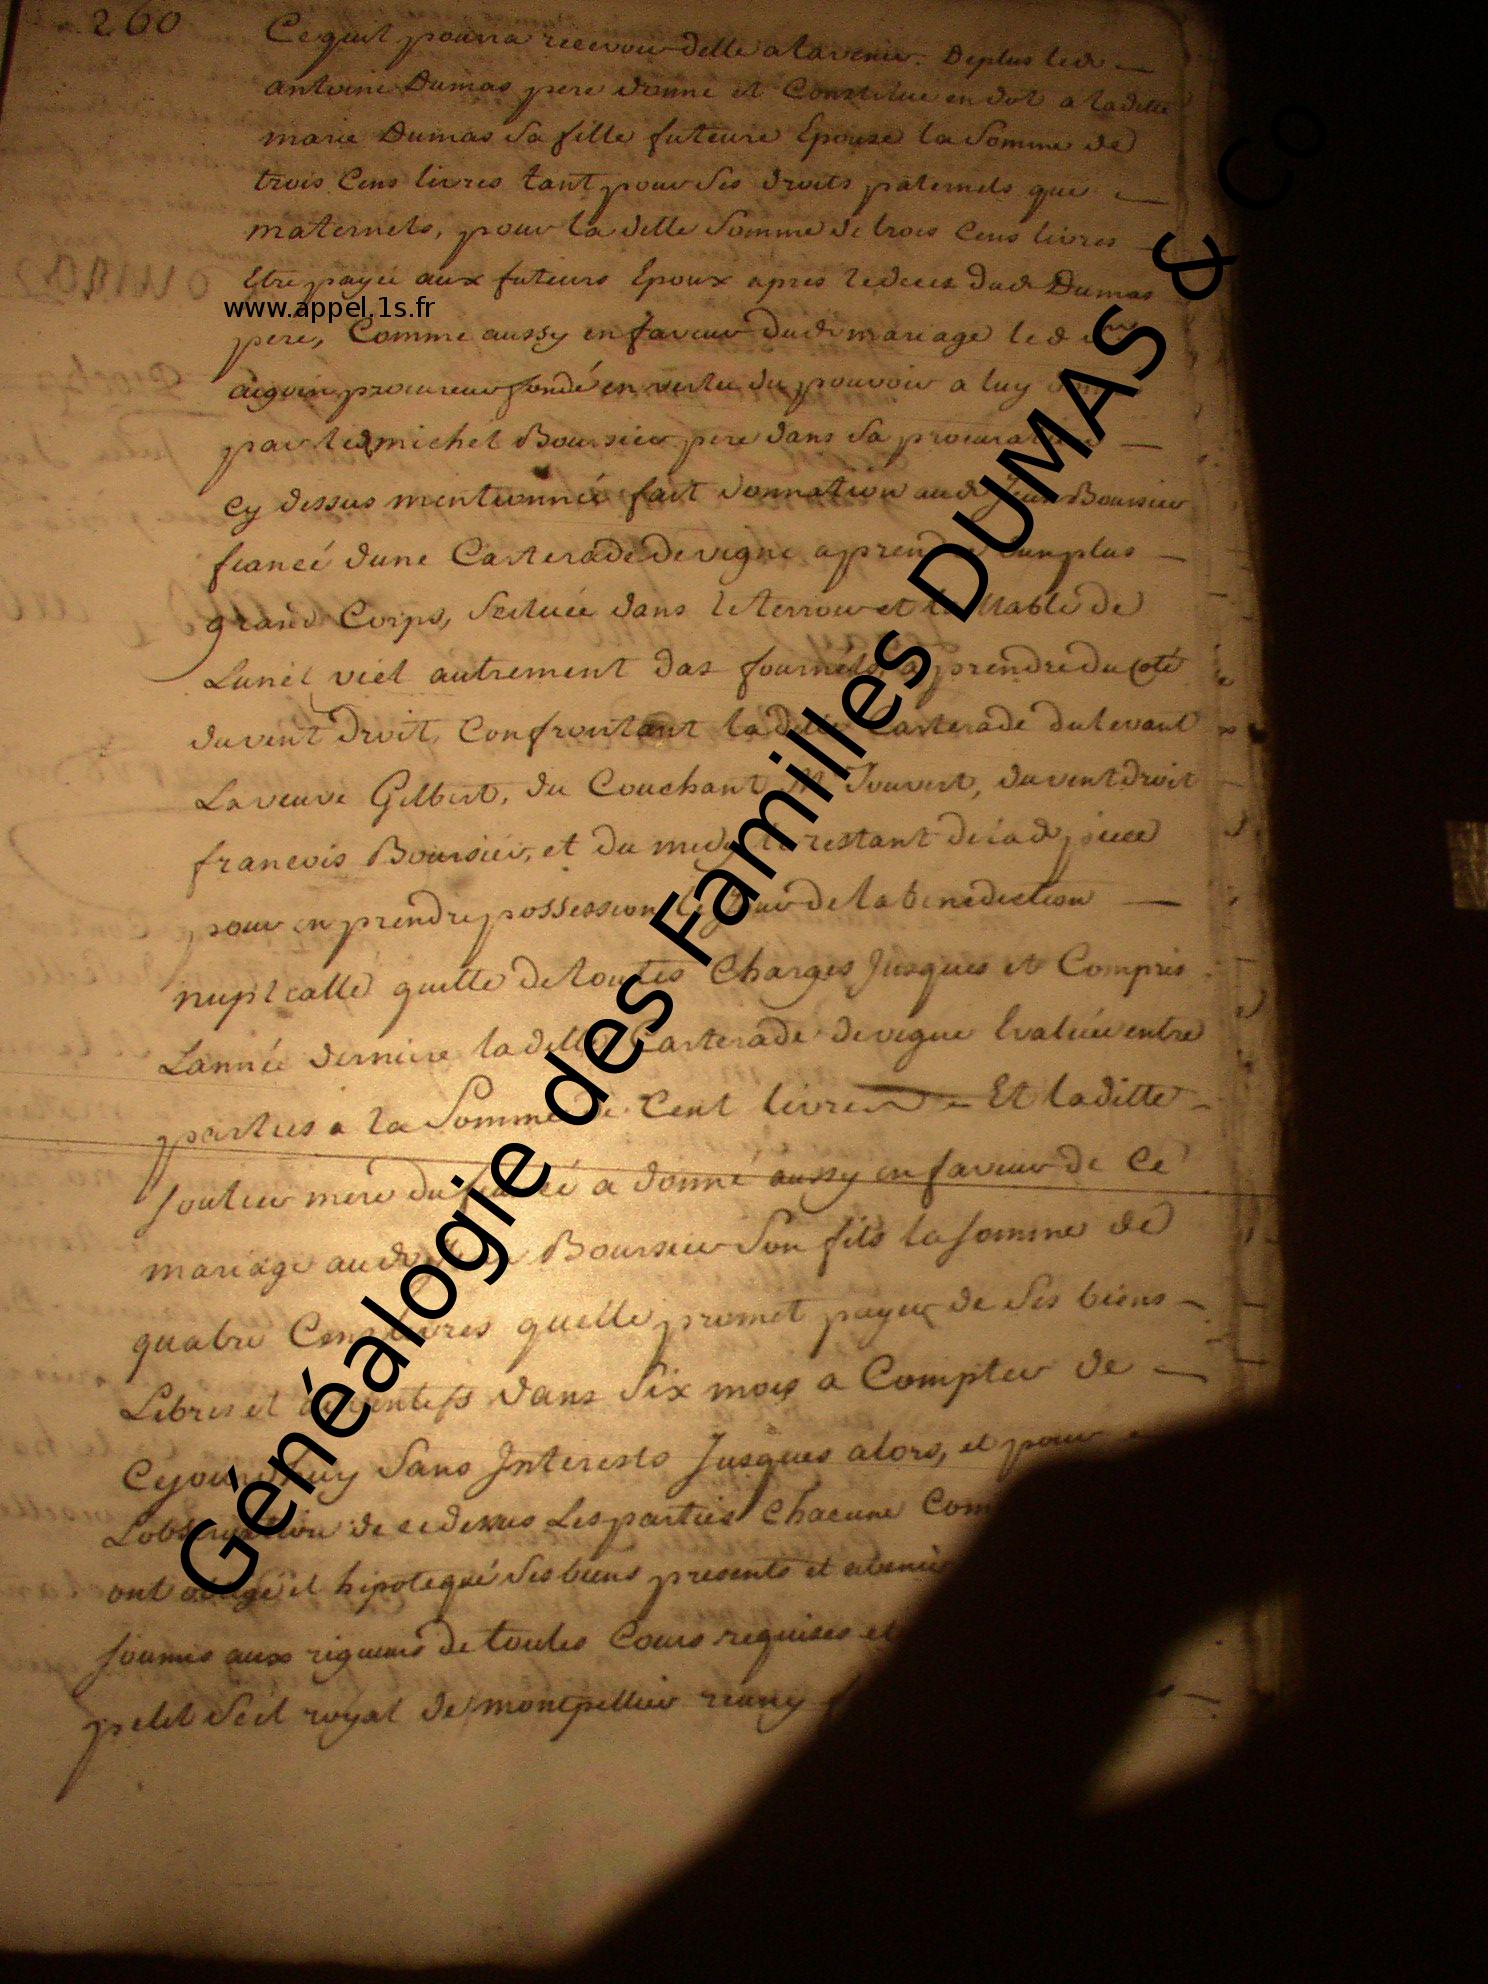 260
Ce quil pourra recevoir delle a lavenir. Deplus led
antoine Dumas pere donne et Constitue en dot a ladelle
marie Dumas Sa fille future Epouse la Somme de
trois Cens livres tant pour Ses droits paternels que
maternels, pour la dette Somme de trois Cens livres
Etre payée aux futeurs Epoux apres ledeces dud Dumas
www.appel.1s.fr
pere, Comme aussy en faveur dud mariage led
procureur fondé en vertu du pouvoir a luy
par led michel Boursier pere dans Sa
cy dessus mentionnée fait donnation aud Jean Boursier
fiancé dune Carterade de vigne a prendre dun plus
grand Corps, Scituée dans le terroir et taillable de
Lunel viel autrement das fournels, a prendre du Coté
du vent droit, Confrontant la ditte Carterade du levant
La veuve Gilbert, du Couchant Mr Touvert, du vent droit
francois Boursier, et du midy le restant de lad piece
pour en prendre possession le jour de la benediction
nuptialle quitte de toutes Charges Jusques et Compris
Lannée derniere la ditte Carterade de vigne Evaluée entre
parties a la Somme de Cent livres Et laditte
Soulier mere du fiancé a donné aussy en faveur de Ce
mariage aud Jean Boursier Son fils la somme de
quatre Cens livres quelle promet payer de Ses biens
Libres et dans Six mois a Compter de
Cejourdhuy Sans Interests Jusques alors, et pour
Lobservation de cedessus Les parties Chacune
ont obligé et hipotequé Ses biens presents et avenir
soumis aux rigueurs de toutes Cours requises et
petit Seel royal de montpellier
Généalogie des Familles DUMAS & Co